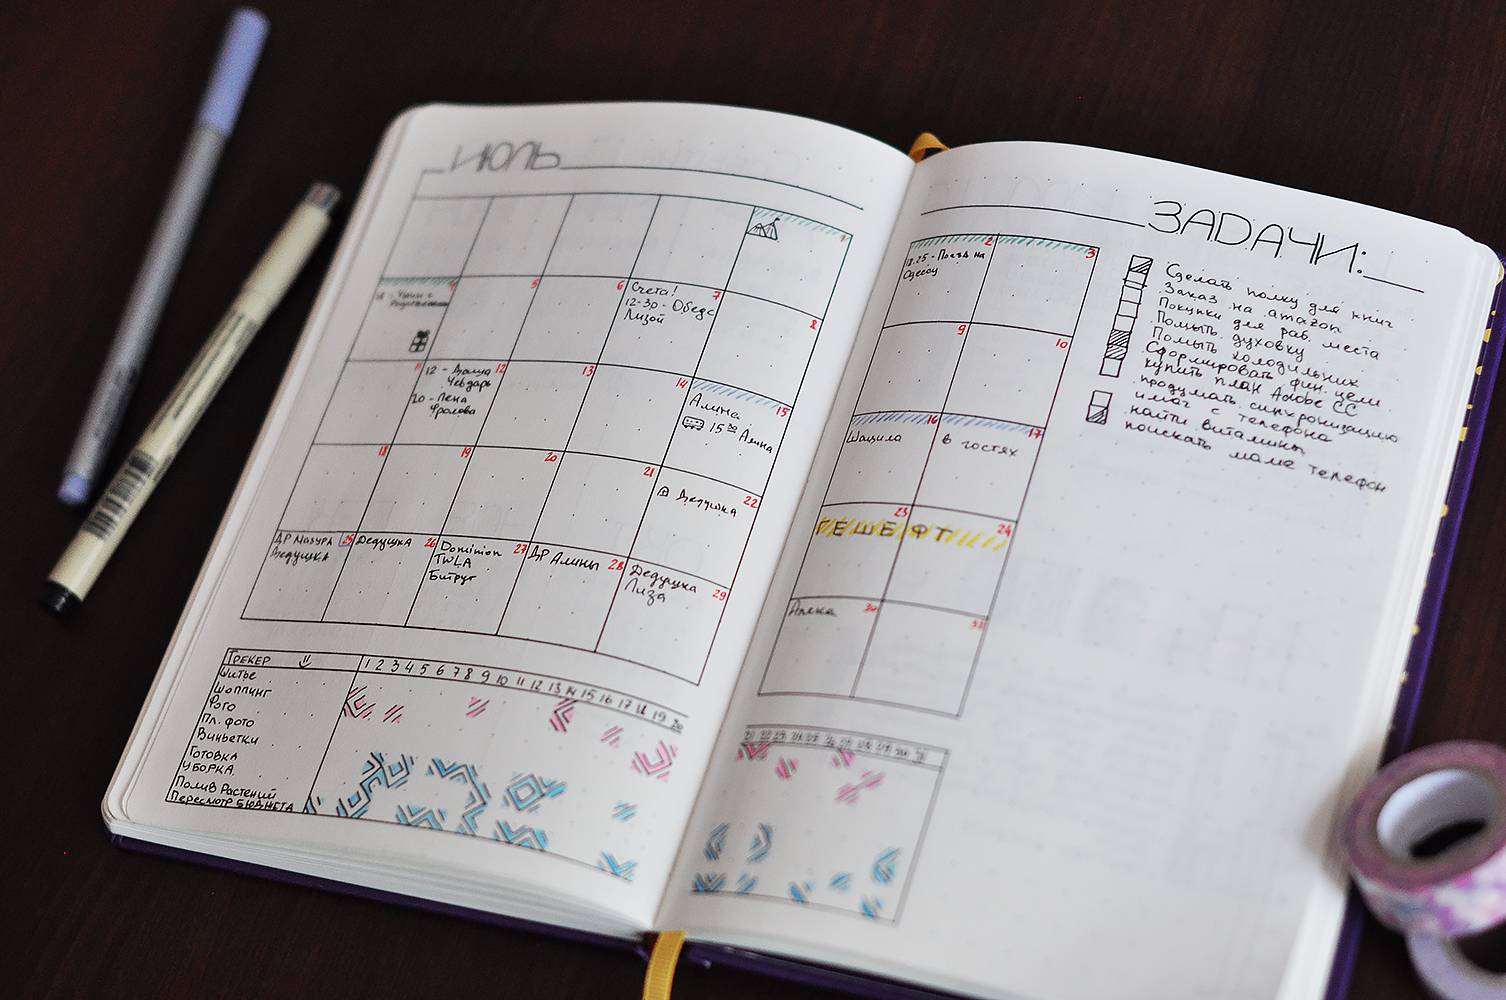 ИЮЛЬ
1
4
5
6
Счета! 7
12-30 - Обед с
Лизой
8
11
12 - Даша 12
Чевдарь
20 - Лена
Фролова
13
14
Алина 15
15 30 Алина
18
19
20
21
Дедушка 22
ДР Мазура 25
Дедушка
Дедушка 26
Dominion 27
TWLA
Битруг
ДР Алины 28
Дедушка
Лиза 29
ТРЕКЕР
1 2 3 4 5 6 7 8 9 10 11 12 13 14 15 16 17 18 19 20
Шитье
Шоппинг
Пл. фото
Виньетки
Готовка
УБОРКА
Полив Растений
Пересмотр БЮДЖЕТА
ЗАДАЧИ:
2
18.25 - Поезд на
Одессу
3
9
10
16
17
в гостях
23
24
ГЕШЕФТ
30
31
21 22 23 24 25 26 27 28 29 30 31
Сделать полку для книг
Заказ на amazon
Покупки для раб. места
Помыть духовку
Помыть холодильник
Сформировать фин. цели
купить план Adobe CC
продумать синхронизацию
имас с телефона
найти витамины
поискать маме телефон